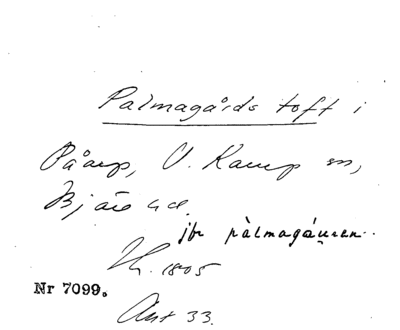 Palmagårds toft i
Påarp, V. Karup sn,
Bjäre hd.
jfr pàlmagáu̱ren..
Lh. 1805
Nr 7099.
Akt 33.